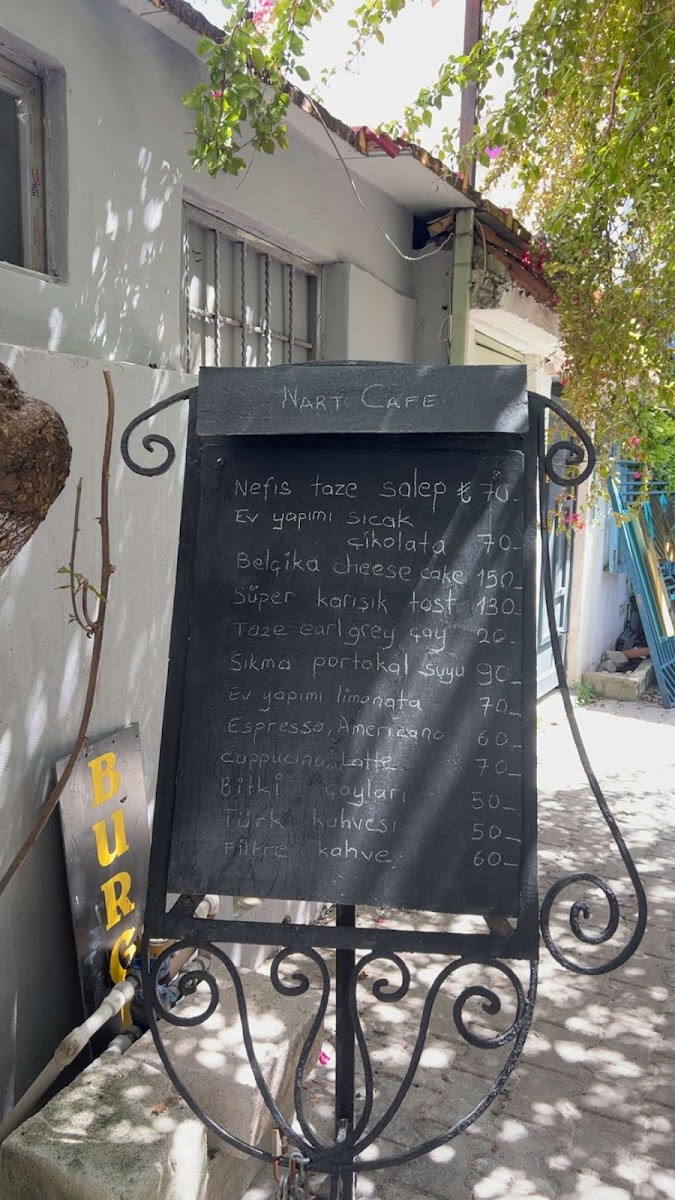 NART CAFE
Nefis taze salep ₺ 70-
Ev yapımı sıcak
çikolata 70-
Belçika cheese cake 150-
Süper karışık tost 130-
Taze earl grey çay 20-
Sıkma portakal suyu 90-
Ev yapımı limonata 70-
Espresso, Americano 60-
cappucino, Latte 70-
Bitki çayları 50-
Türk kahvesi 50-
Filtre kahve 60-
BURG